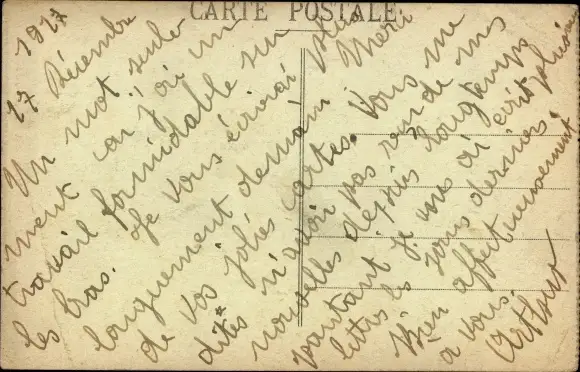 CARTE POSTALE
17 Décembre 1917
Un mot seule
ment car j'ai un
travail formidable sur
les bras. Je vous écrirai plus
longuement demain Merci
de vos jolies cartes. Vous me
dites n'avoir pas reçu de mes
nouvelles depuis longtemps
pourtant je vous ai écrit plusieurs
lettres les jours derniers.
Bien affectueusement
à vous.
Arthur